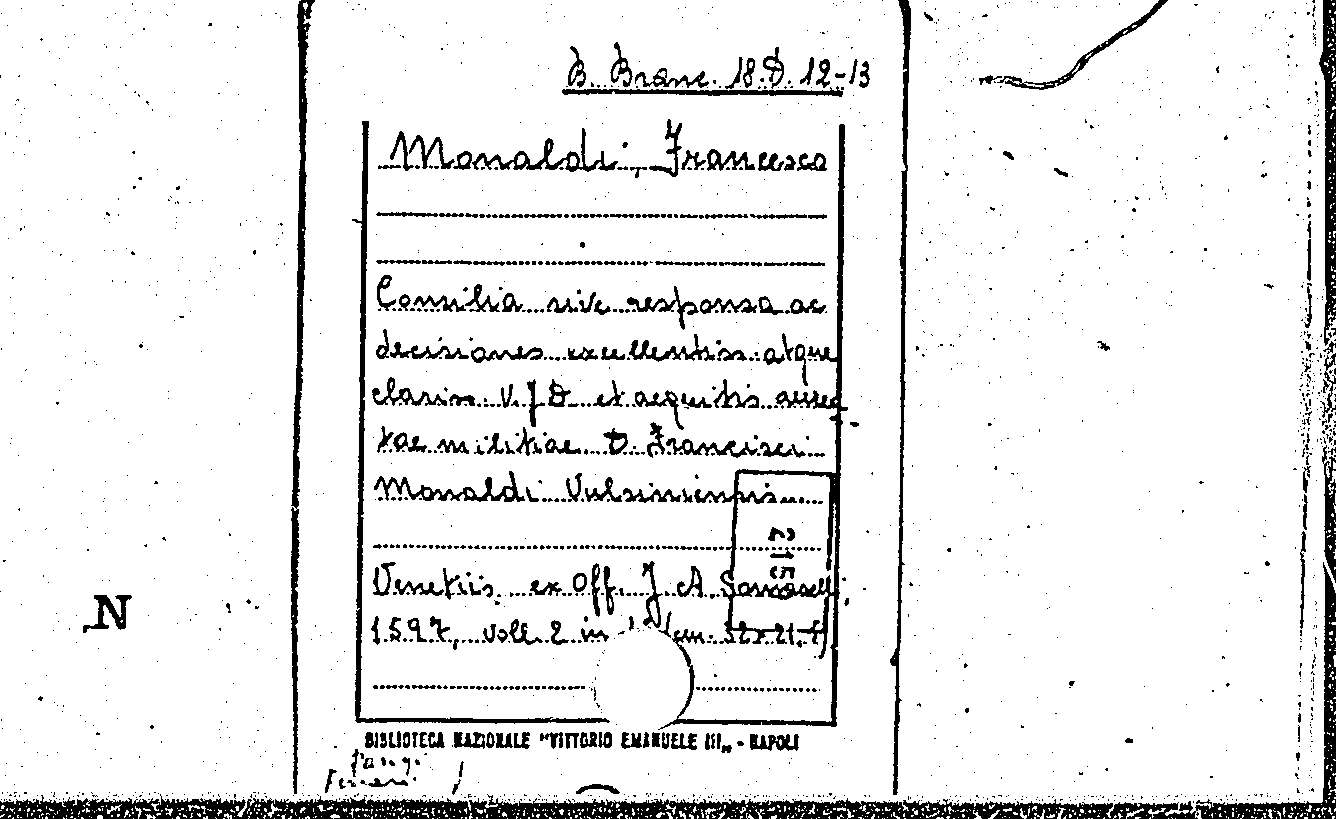 B. Branc. 18.D. 12-13
Monaldi, Francesco
Consilia sive responsa ac
decisiones excellentiss. atque
clariss. V.J.D. et aequitis aurea
tae militiae D. Francisci
Monaldi Vulsiniensis
215
Venetiis, ex Off. J. A. Somaschi,
1597, voll. 2 in cm. 32x21,5
N
BIBLIOTECA NAZIONALE "VITTORIO EMANUELE III„ - NAPOLI